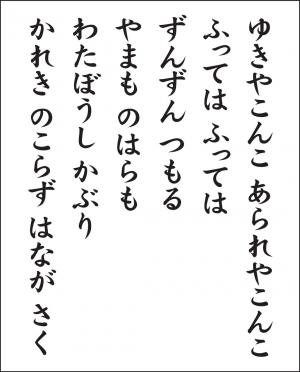 ゆきやこんこ あられやこんこ
ふっては ふっては
ずんずん つもる
やまも のはらも
わたぼうし かぶり
かれき のこらず はなが さく